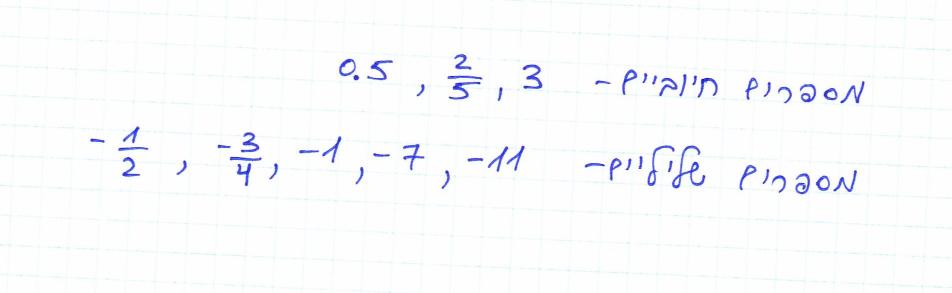 מספרים חיוביים - 3 , 2/5 , 0.5
מספרים שליליים - -11 , -7 , -1 , -3/4 , -1/2